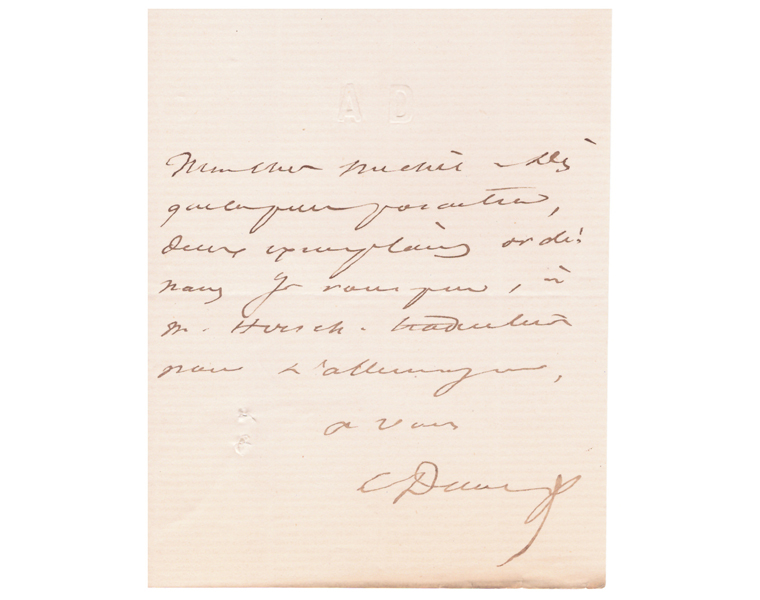 A D
Mon cher Michel - Dès
que la pièce paraîtra,
deux exemplaires ordi-
naires je vous prie, à
M. Hirsch - traducteur
pour l'allemagne,
a vous
ADumasf